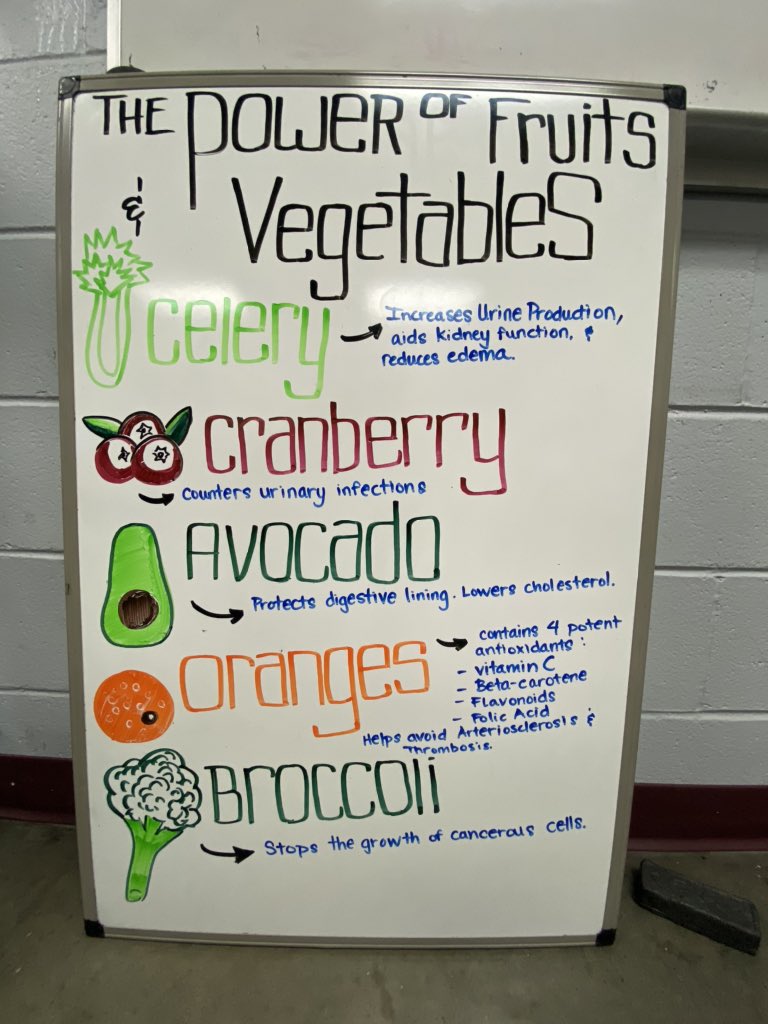 THE POWER OF Fruits
& VegetableS
celery
Increases Urine Production,
aids kidney function, &
reduces edema.
cranberry
counters urinary infections
AVOCADO
Protects digestive lining. Lowers cholesterol.
oranges
contains 4 potent
antioxidants:
- vitamin C
- Beta-carotene
- Flavonoids
- Folic Acid
Helps avoid Arteriosclerosis &
Thrombosis.
BROCCOLi
Stops the growth of cancerous cells.